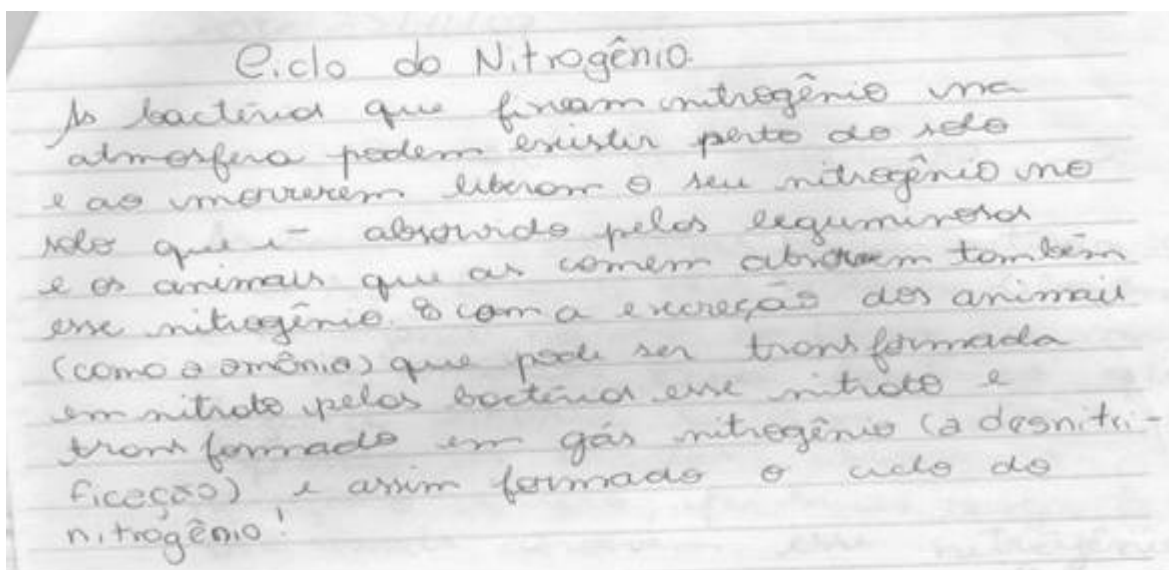 Ciclo do Nitrogênio
As bactérias que fixam nitrogênio na
atmosfera podem existir perto do solo
e ao morrerem liberam o seu nitrogênio no
solo que é absorvido pelas leguminosas
e os animais que as comem absorvem também
esse nitrogênio. com a excreção dos animais
(como a amônia) que pode ser transformada
em nitrato pelas bactérias esse nitrato e
transformado em gás nitrogênio (a desnitri-
ficação) e assim formado o ciclo do
nitrogênio!